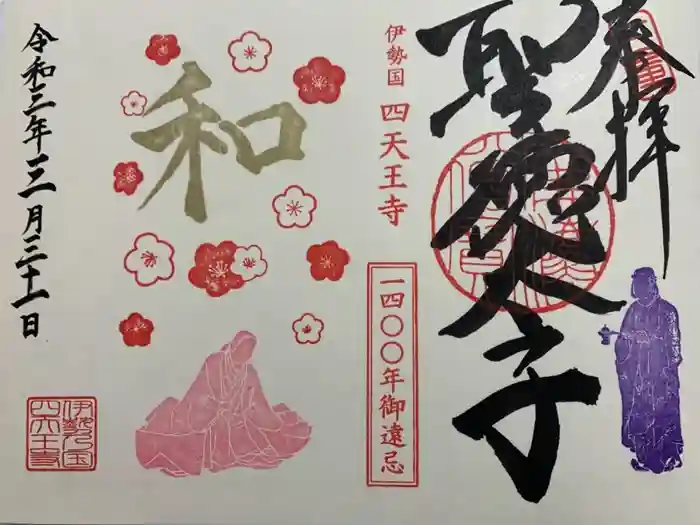 奉拝
聖徳太子
伊勢国 四天王寺
一四〇〇年御遠忌
和
令和三年三月三十一日
伊勢乃国
四天王寺